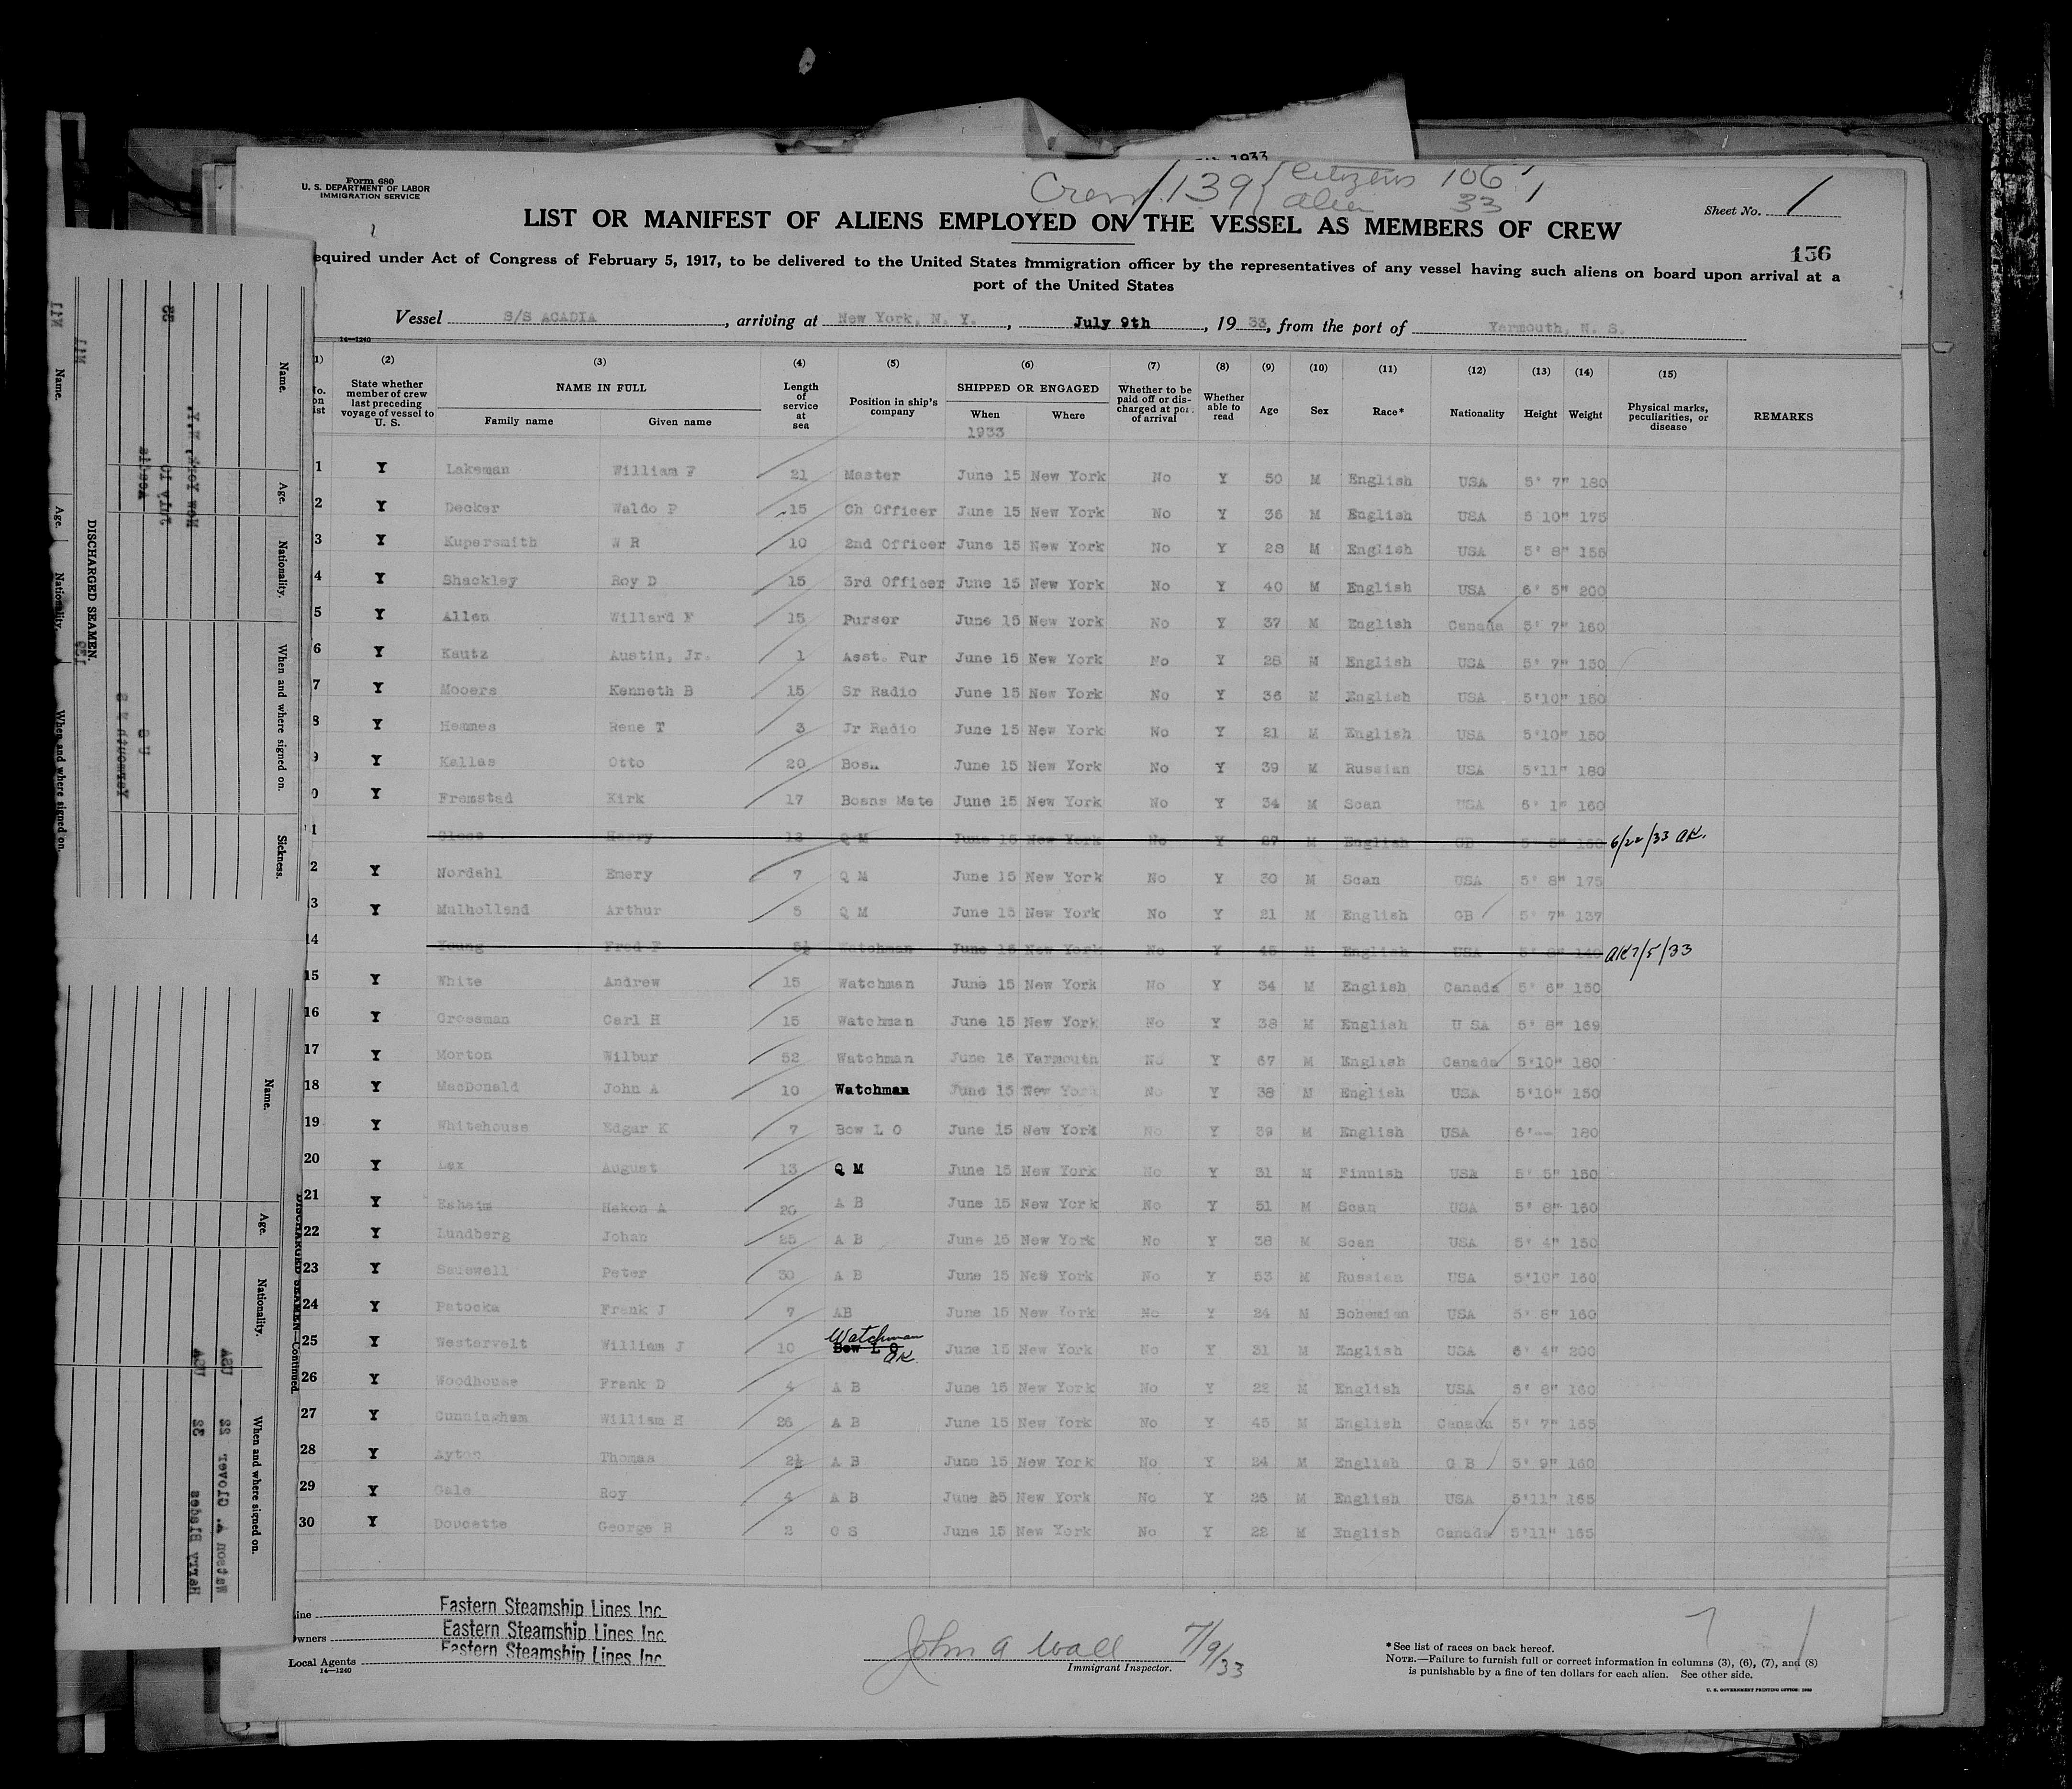 1933
Form 680
U. S. DEPARTMENT OF LABOR
IMMIGRATION SERVICE
Crew 139 { Citizens 106
alien 33
Sheet No. 1
LIST OR MANIFEST OF ALIENS EMPLOYED ON THE VESSEL AS MEMBERS OF CREW
156
equired under Act of Congress of February 5, 1917, to be delivered to the United States Immigration officer by the representatives of any vessel having such aliens on board upon arrival at a
port of the United States
Vessel S/S ACADIA, arriving at New York, N. Y., July 9th, 19 33, from the port of Yarmouth, N. S.
14—1240
(1) (2) (3) (4) (5) (6) (7) (8) (9) (10) (11) (12) (13) (14) (15)
No. on list State whether member of crew last preceding voyage of vessel to U. S. NAME IN FULL Family name Given name Length of service at sea Position in ship's company SHIPPED OR ENGAGED When Where Whether to be paid off or discharged at port of arrival Whether able to read Age Sex Race* Nationality Height Weight Physical marks, peculiarities, or disease REMARKS
1933
1 Y Lakeman William F 21 Master June 15 New York No Y 50 M English USA 5' 7" 180
2 Y Decker Waldo P 15 Ch Officer June 15 New York No Y 36 M English USA 5 10" 175
3 Y Kupersmith W R 10 2nd Officer June 15 New York No Y 28 M English USA 5' 8" 155
4 Y Shackley Roy D 15 3rd Officer June 15 New York No Y 40 M English USA 6' 5" 200
5 Y Allen Willard F 15 Purser June 15 New York No Y 37 M English Canada 5' 7" 160
6 Y Kautz Austin, Jr. 1 Asst. Pur June 15 New York No Y 28 M English USA 5' 7" 150
7 Y Mooers Kenneth B 15 Sr Radio June 15 New York No Y 36 M English USA 5'10" 150
8 Y Hemmes Rene T 3 Jr Radio June 15 New York No Y 21 M English USA 5'10" 150
9 Y Kallas Otto 20 Bosn June 15 New York No Y 39 M Russian USA 5'11" 180
0 Y Framstad Kirk 17 Bosns Mate June 15 New York No Y 34 M Scan USA 6' 1" 160
1 Harry Q M June 15 New York No Y 27 M English GB 6/22/33 OK.
2 Y Nordahl Emery 7 Q M June 15 New York No Y 30 M Scan USA 5' 8" 175
3 Y Mulholland Arthur 5 Q M June 15 New York No Y 21 M English GB 5' 7" 137
14 Young Fred F 5½ Watchman June 15 New York No Y 45 M English USA 140 OK 7/5/33
15 Y White Andrew 15 Watchman June 15 New York No Y 34 M English Canada 5' 6" 150
16 Y Crossman Carl H 15 Watchman June 15 New York No Y 38 M English U SA 5' 8" 169
17 Y Morton Wilbur 52 Watchman June 16 Yarmouth No Y 67 M English Canada 5'10" 180
18 Y MacDonald John A 10 Watchman June 15 New York No Y 38 M English USA 5'10" 150
19 Y Whitehouse Edgar K 7 Bow L O June 15 New York No Y 39 M English USA 6'-- 180
20 Y Lax August 13 Q M June 15 New York No Y 31 M Finnish USA 5' 5" 150
21 Y Hakon A 20 A B June 15 New York No Y 51 M Scan USA 5' 8" 150
22 Y Lundberg Johan 25 A B June 15 New York No Y 38 M Scan USA 5' 4" 150
23 Y Peter 30 A B June 15 New York No Y 53 M Russian USA 5'10" 160
24 Y Patocka Frank J 7 AB June 15 New York No Y 24 M Bohemian USA 5' 8" 160
25 Y Westervelt William J 10 Watchman Bow L O OK June 15 New York No Y 31 M English USA 6' 4" 200
26 Y Woodhouse Frank D 4 A B June 15 New York No Y 22 M English USA 5' 8" 160
27 Y Cunningham William H 26 A B June 15 New York No Y 45 M English Canada 5' 7" 165
28 Y Ayton Thomas 2½ A B June 15 New York No Y 24 M English G B 5' 9" 160
29 Y Gale Roy 4 A B June 15 New York No Y 25 M English USA 5'11" 165
30 Y Doucette George R 2 O S June 15 New York No Y 22 M English Canada 5'11" 165
Line Eastern Steamship Lines Inc
Owners Eastern Steamship Lines Inc
Local Agents Eastern Steamship Lines Inc
14—1240
John A Wall 7/9/33
Immigrant Inspector.
* See list of races on back hereof.
NOTE.—Failure to furnish full or correct information in columns (3), (6), (7), and (8)
is punishable by a fine of ten dollars for each alien. See other side.
U. S. GOVERNMENT PRINTING OFFICE: 1932
DISCHARGED SEAMEN.
Name. Age. Nationality. When and where signed on. Sickness.
Name. Age. Nationality. When and where signed on.
DISCHARGED SEAMEN—Continued.
Name. Age. Nationality. When and where signed on.
Acadia
July 10
New York, N.Y.
Yarmouth N S
Watson A. Glover 22 USA
Harry Blades 23 USA